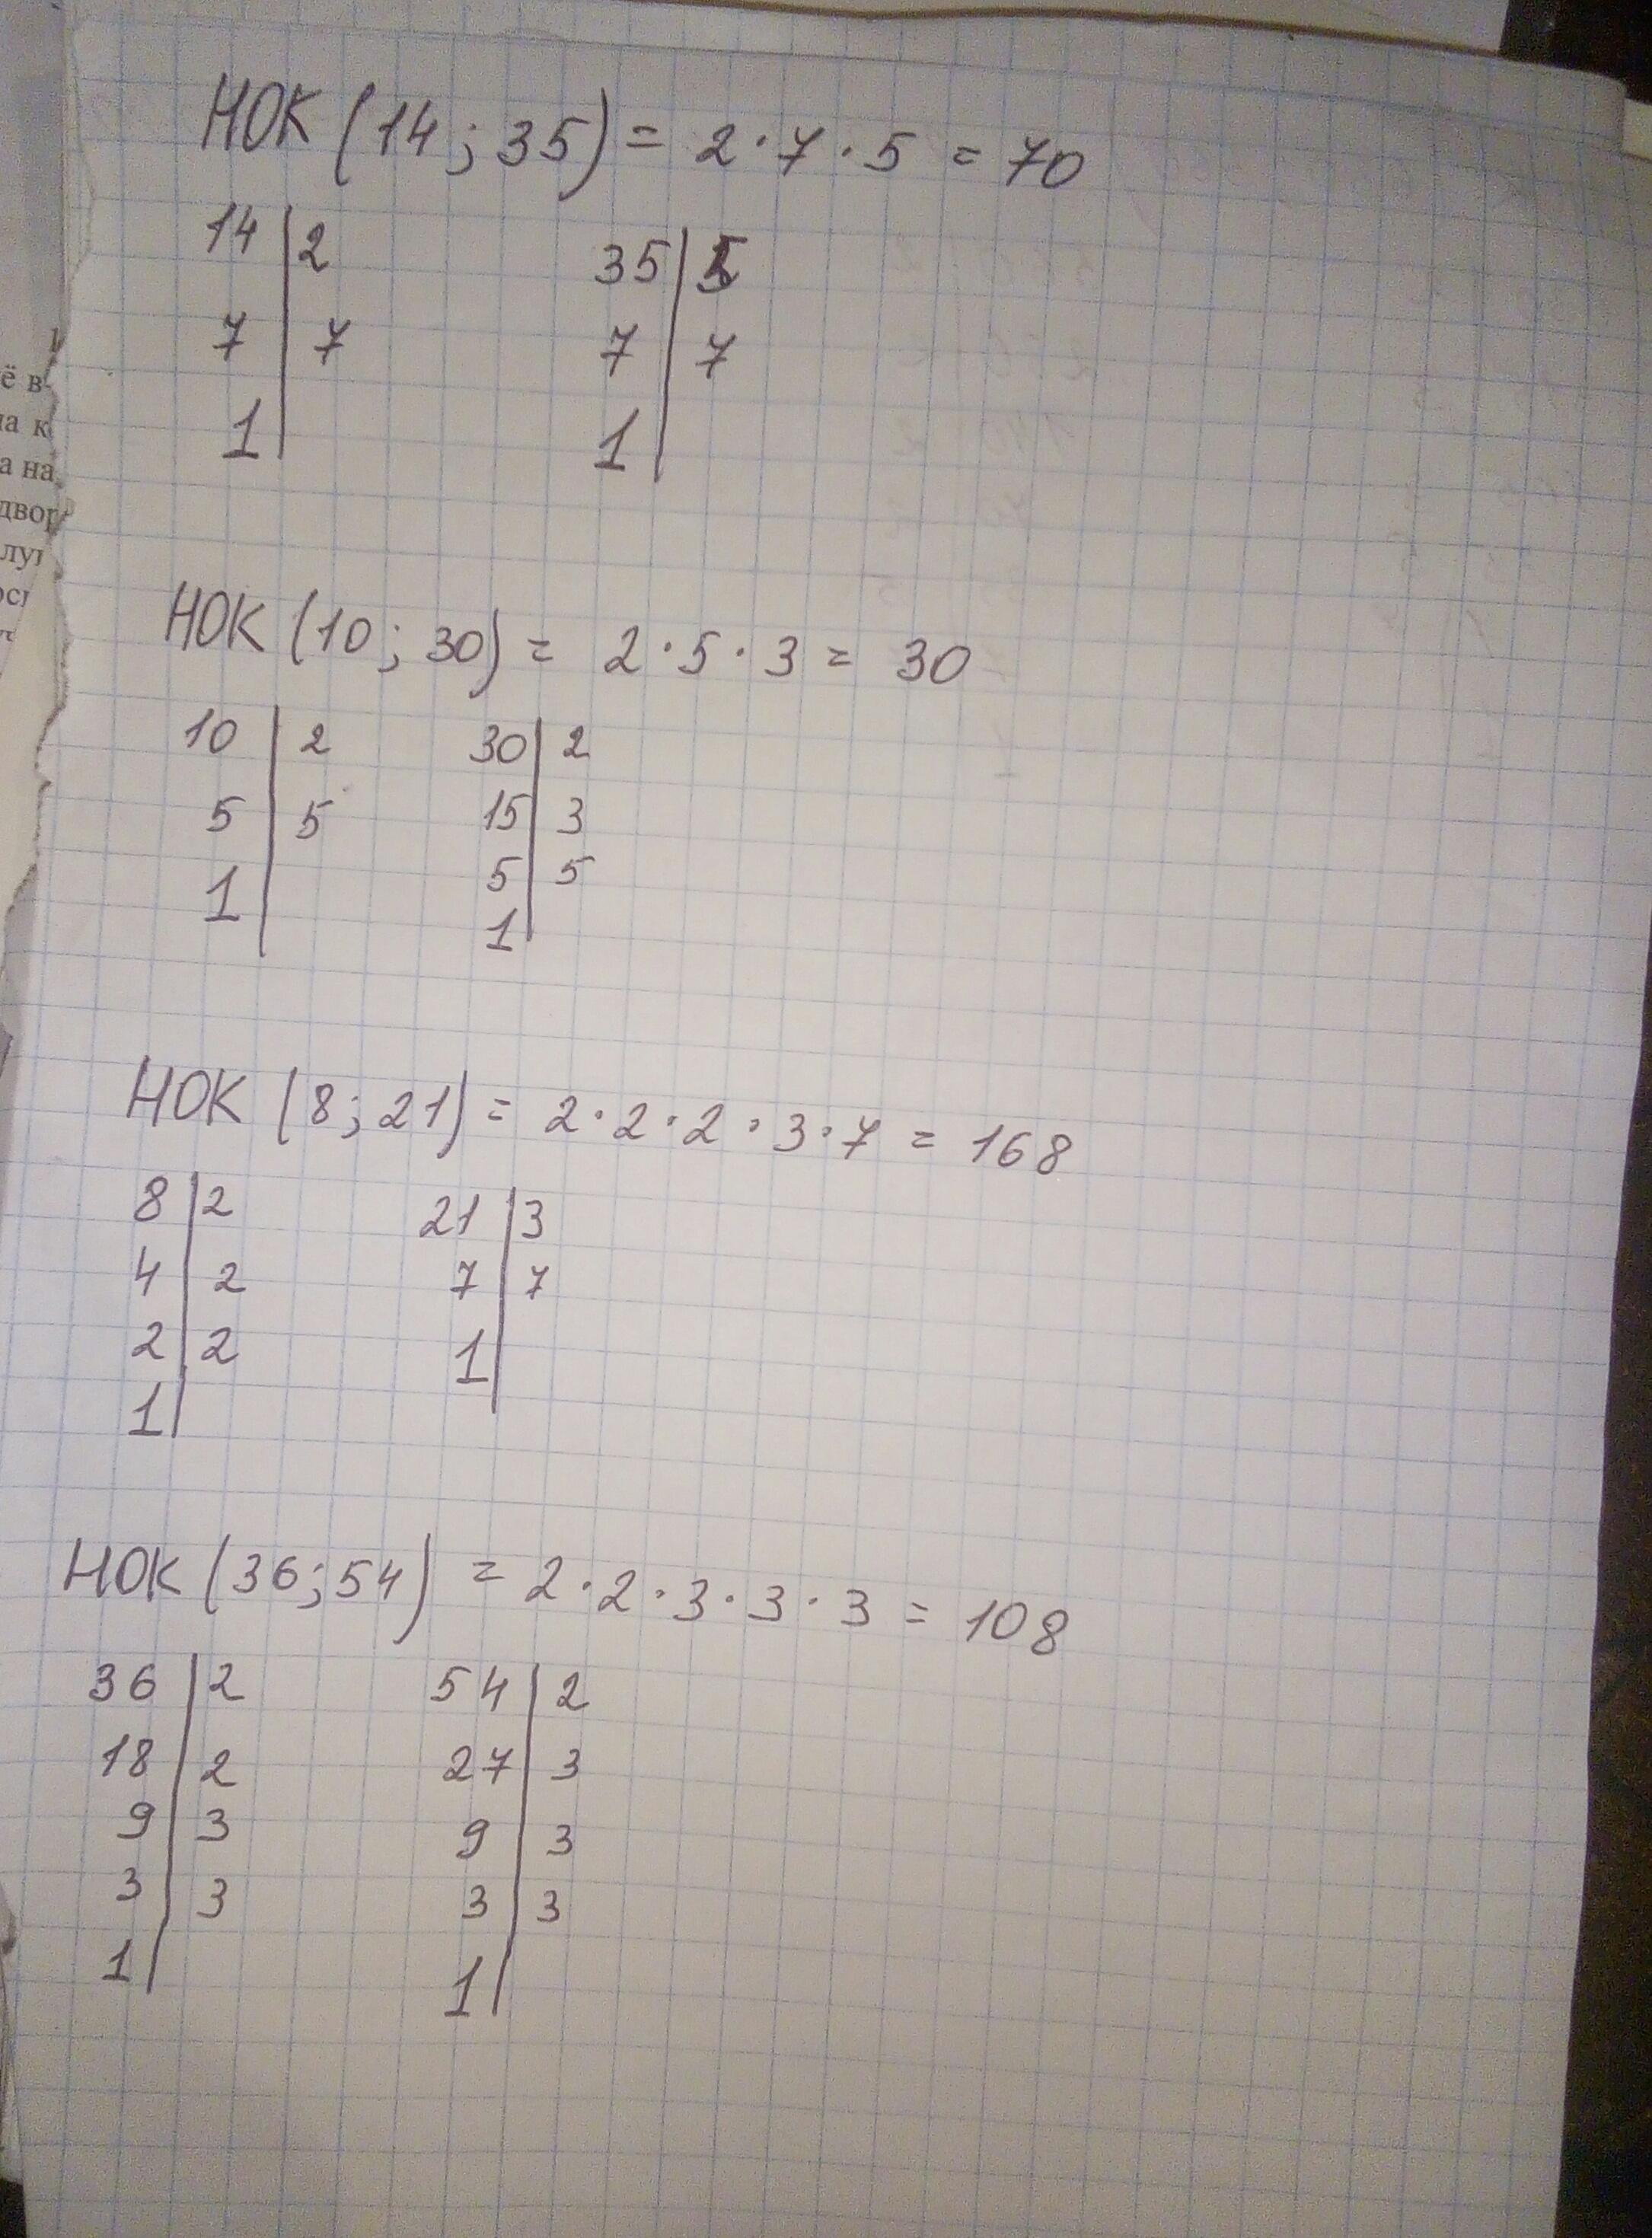 НОК (14; 35) = 2·7·5 = 70
14 | 2   35 | 5
7 | 7   7 | 7
1 |   1 |
НОК (10; 30) = 2·5·3 = 30
10 | 2   30 | 2
5 | 5   15 | 3
1 |   5 | 5
1 |
НОК (8; 21) = 2·2·2·3·7 = 168
8 | 2   21 | 3
4 | 2   7 | 7
2 | 2   1 |
1 |
НОК (36; 54) = 2·2·3·3·3 = 108
36 | 2   54 | 2
18 | 2   27 | 3
9 | 3   9 | 3
3 | 3   3 | 3
1 |   1 |